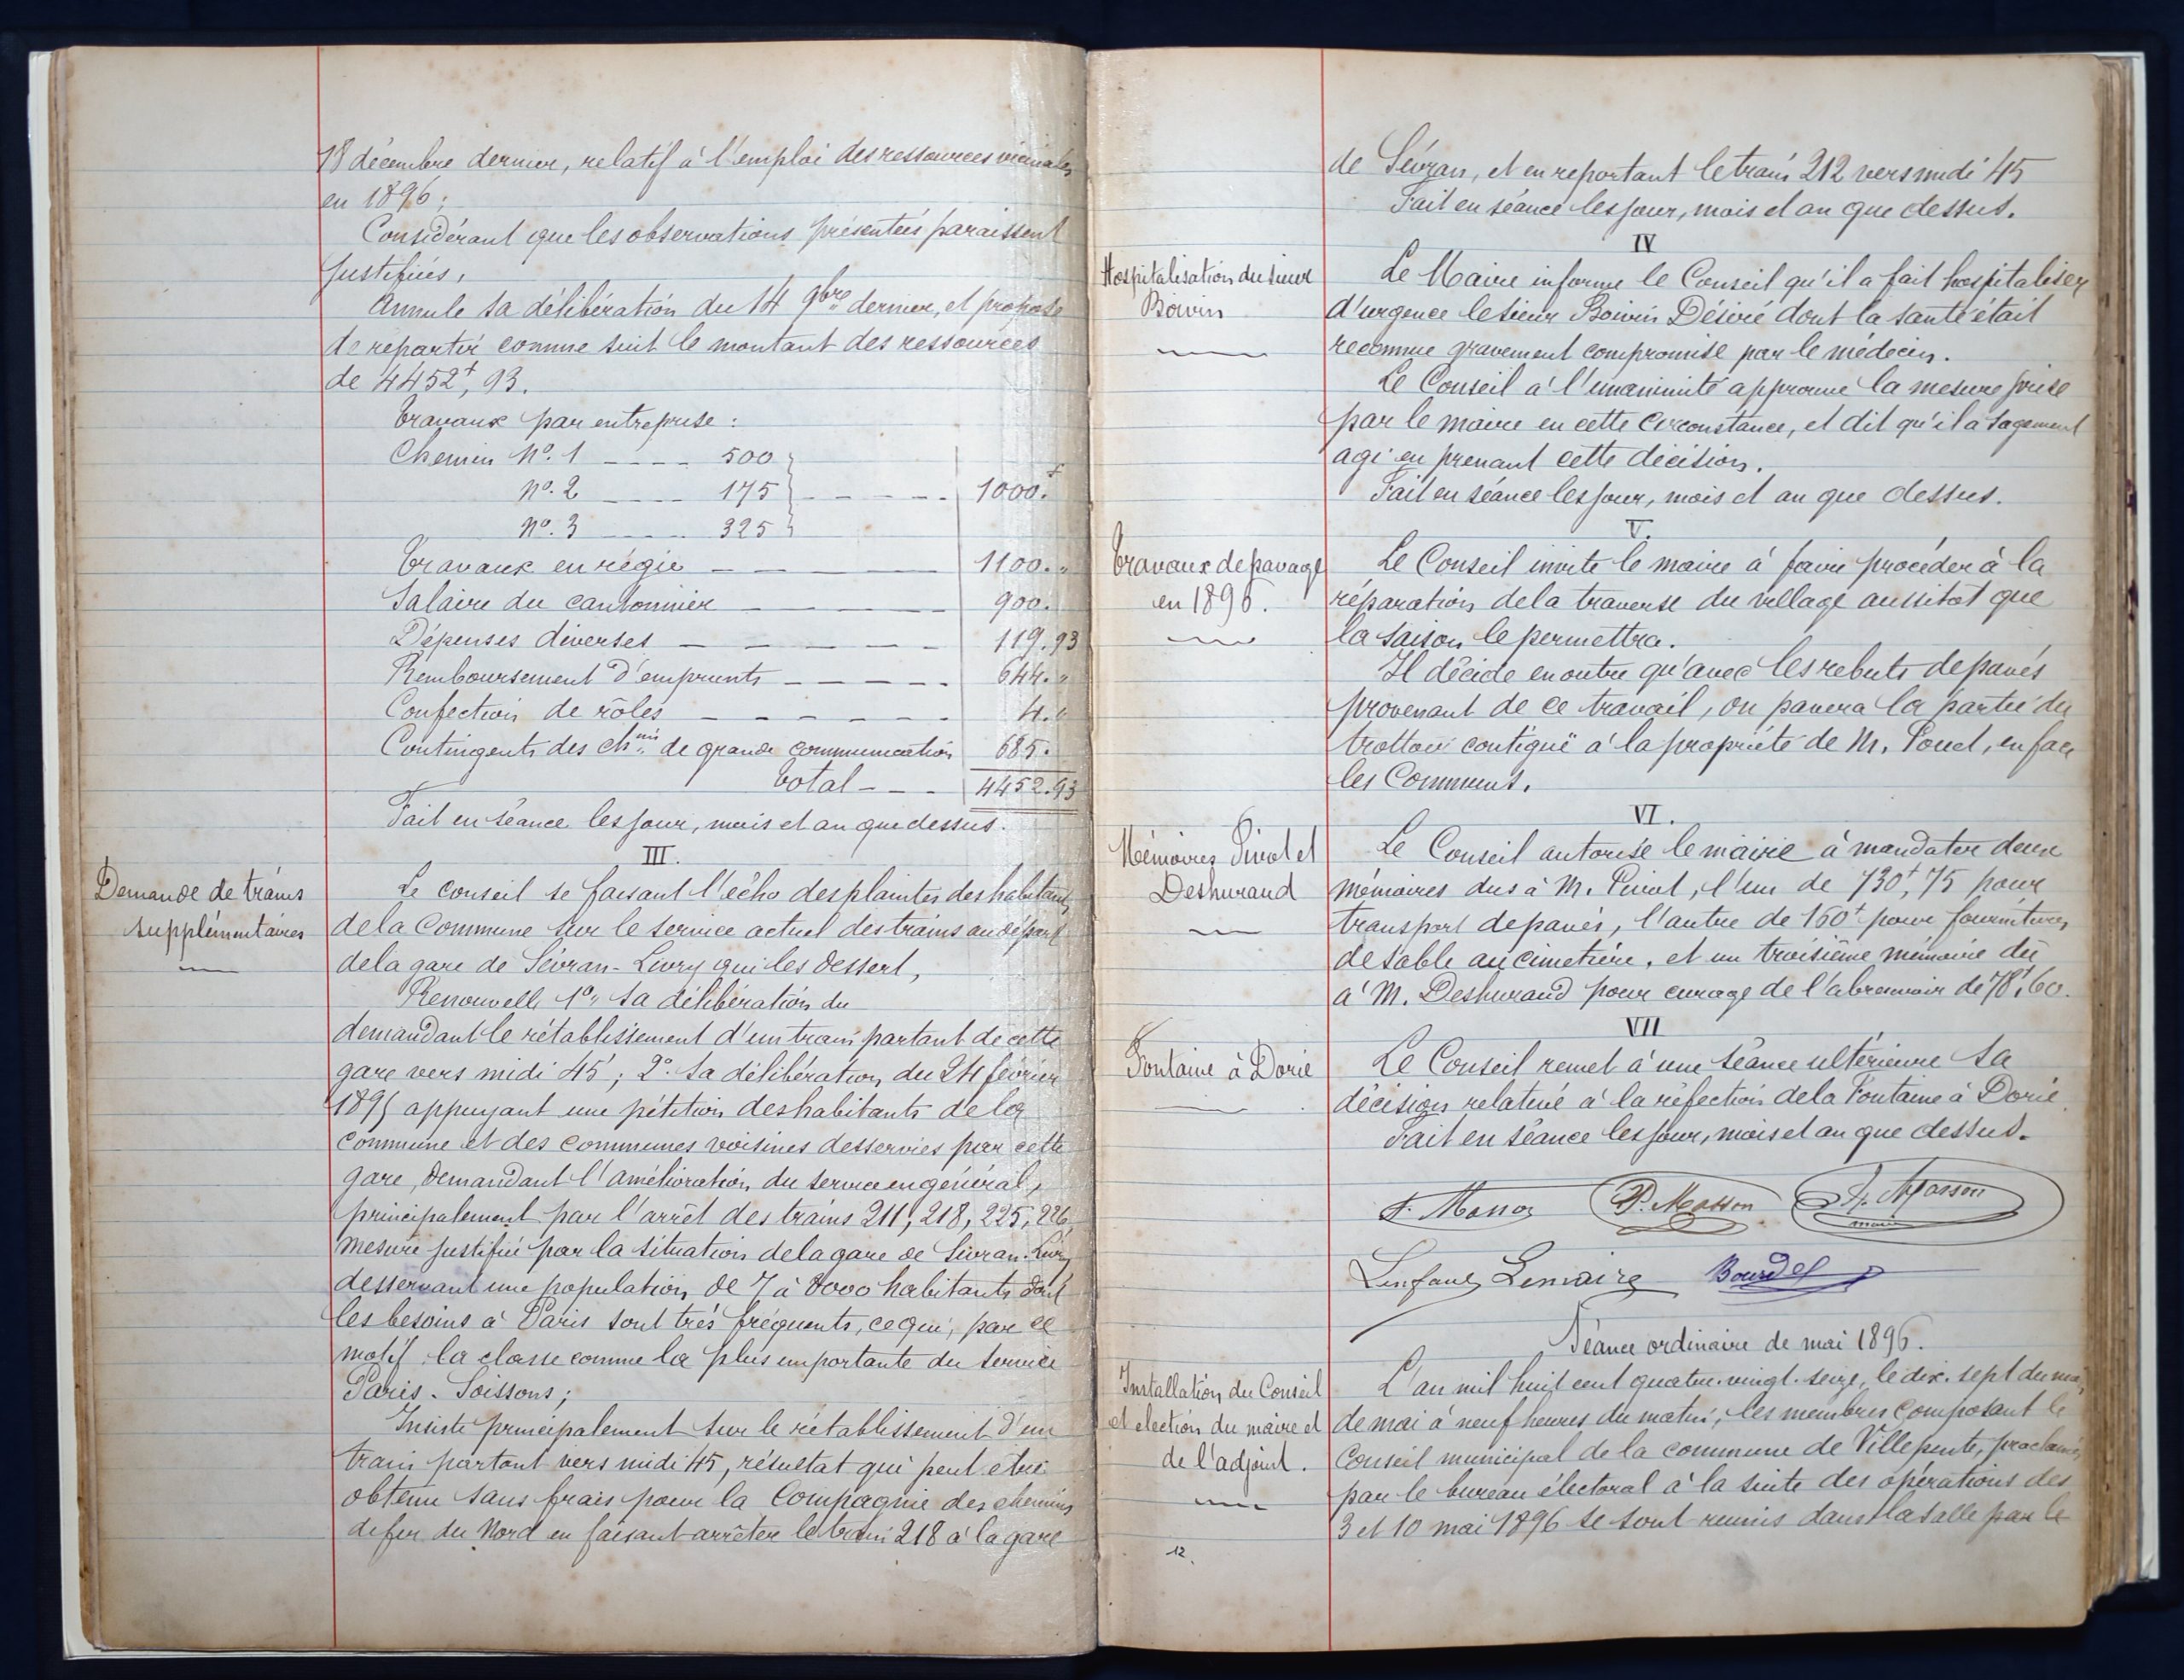 18 décembre dernier, relatif à l'emploi des ressources vicinales
en 1896;
Considérant que les observations présentées paraissent
justifiées,
Annule sa délibération du 14 9bre dernier, et propose
de répartir comme suit le montant des ressources
de 4452f, 93.
Travaux par entreprise :
Chemin No. 1 ---- 500
No. 2 ---- 175 ----- 1000.f
No. 3 ---- 325
Travaux en régie ----- 1100. "
Salaire du cantonnier ----- 900.
Dépenses diverses ------ 119.93
Remboursement d'emprunts ----- 644. "
Confection de rôles ------ 4. "
Contingents des chins de grande communication 685.
Total --- 4452.93
Fait en séance les jour, mois et an que dessus.
III.
Demande de trains
supplémentaires
Le conseil se faisant l'écho des plaintes des habitants
de la Commune sur le service actuel des trains au départ
de la gare de Sevran-Livry qui les dessert,
Renouvelle 1o, sa délibération du
demandant le rétablissement d'un train partant de cette
gare vers midi 45'; 2o. sa délibération du 24 février
1895 appuyant une pétition des habitants de la
commune et des communes voisines desservies par cette
gare, demandant l'amélioration du service en général,
principalement par l'arrêt des trains 211, 218, 225, 226,
mesure justifiée par la situation de la gare de Sevran-Livry
desservant une population de 7 à 8000 habitants dont
les besoins à Paris sont très fréquents, ce qui, par ce
motif la classe comme la plus importante du service
Paris-Soissons;
Insiste principalement sur le rétablissement d'un
train partant vers midi 45, résultat qui peut être
obtenu sans frais pour la Compagnie des chemins
de fer du Nord en faisant arrêter le train 218 à la gare
de Sévran, et en reportant le train 212 vers midi 45
Fait en séance les jour, mois et an que dessus.
IV
Hospitalisation du sieur
Boivin
Le Maire informe le Conseil qu'il a fait hospitaliser
d'urgence le sieur Boivin Désiré dont la santé était
reconnue gravement compromise par le médecin.
Le Conseil à l'unanimité approuve la mesure prise
par le maire en cette circonstance, et dit qu'il a sagement
agi en prenant cette décision.
Fait en séance les jour, mois et an que dessus.
V.
Travaux de pavage
en 1896.
Le Conseil invite le maire à faire procéder à la
réparation de la traverse du village aussitôt que
la saison le permettra.
Il décide en outre qu'avec les rebuts de pavés
provenant de ce travail, on pavera la partie du
trottoir contiguë à la propriété de M. , en face
les Communs.
VI.
Mémoires et
Deshuraud
Le Conseil autorise le maire à mandater deux
mémoires dus à M. , l'un de 730f,75 pour
transport de pavés, l'autre de 160f pour fournitures
de sable au cimetière, et un troisième mémoire dû
à M. Deshuraud pour curage de l'abreuvoir de 78f,60.
VII
Fontaine à Dorié
Le Conseil remet à une séance ultérieure sa
décision relative à la réfection de la Fontaine à Dorié.
Fait en séance les jour, mois et an que dessus.
P. Masson
Masson
maire
Lemaire Bourdel
Séance ordinaire de mai 1896.
Installation du Conseil
et élection du maire et
de l'adjoint.
L'an mil huit cent quatre-vingt-seize, le dix-sept du mois
de mai à neuf heures du matin, les membres composant le
Conseil municipal de la commune de Villepinte, proclamés
par le bureau électoral à la suite des opérations des
3 et 10 mai 1896 se sont réunis dans la salle par le
12.